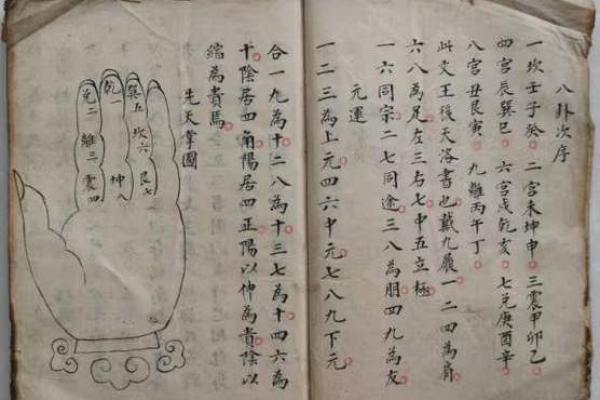 八卦次序
一坎壬子癸。二宮未坤申。三震甲卯乙。
四宮辰巽巳。六宮戌乾亥。七兌庚酉辛。
八宮丑艮寅。九離丙午丁。
此文王後天洛書也。戴九履一二四為肩。
六八為足左三右七。中五立極。
一六同宗。二七同途。三八為朋。四九為友。
元運
一二三為上元。四六中元。七八九下元。
合一九為十二八為十三七為十四六為
十。陰居四角。陽居四正。陽以伸為貴。陰以
縮為貴馬。
先天掌圖
巽五
坎六
艮七
乾一
坤八
兌二
離三
震四